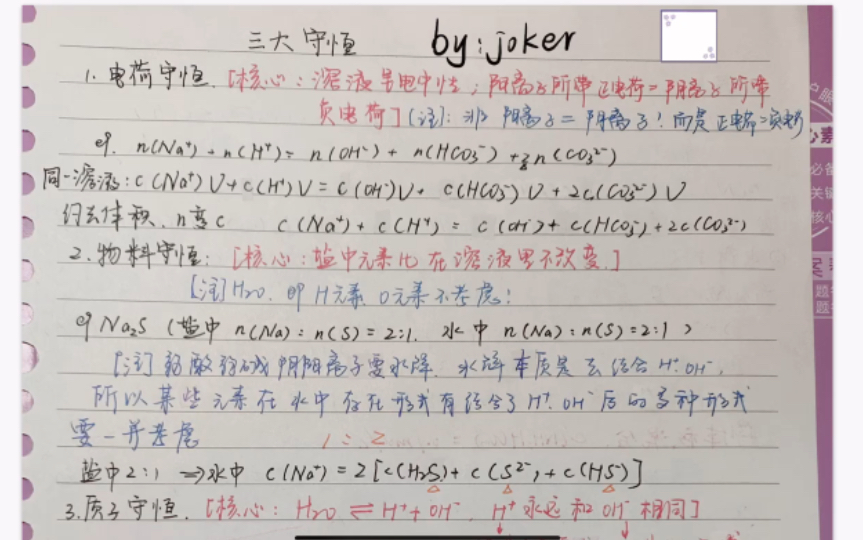 三大守恒 by:joker
1. 电荷守恒. [核心:溶液呈电中性,阳离子所带正电荷=阴离子所带
负电荷] [注]: 非阳离子=阴离子! 而是正电荷=负电荷
eg. n(Na⁺)+n(H⁺)= n(OH⁻)+ n(HCO₃⁻)+2n(CO₃²⁻)
同一溶液:c(Na⁺)V+c(H⁺)V=c(OH⁻)V+ c(HCO₃⁻)V+2c(CO₃²⁻)V
约去体积, n变c c(Na⁺)+c(H⁺)= c(OH⁻)+c(HCO₃⁻)+2c(CO₃²⁻)
2.物料守恒: [核心:盐中元素比在溶液里不改变.]
[注]H₂O. 即H元素 O元素不考虑!
eg Na₂S (盐中 n(Na):n(S)=2:1. 水中 n(Na):n(S)=2:1 )
[注]弱酸弱碱阴阳离子要水解. 水解本质是去结合H⁺.OH⁻,
所以某些元素在水中存在形式有结合了H⁺.OH⁻后的多种形式
要一并考虑 1:2
盐中2:1 ⇒水中 c(Na⁺)=2[c(H₂S)+c(S²⁻)+c(HS⁻)]
3.质子守恒. [核心: H₂O ⇌ H⁺+OH⁻, H⁺永远和OH⁻相同]